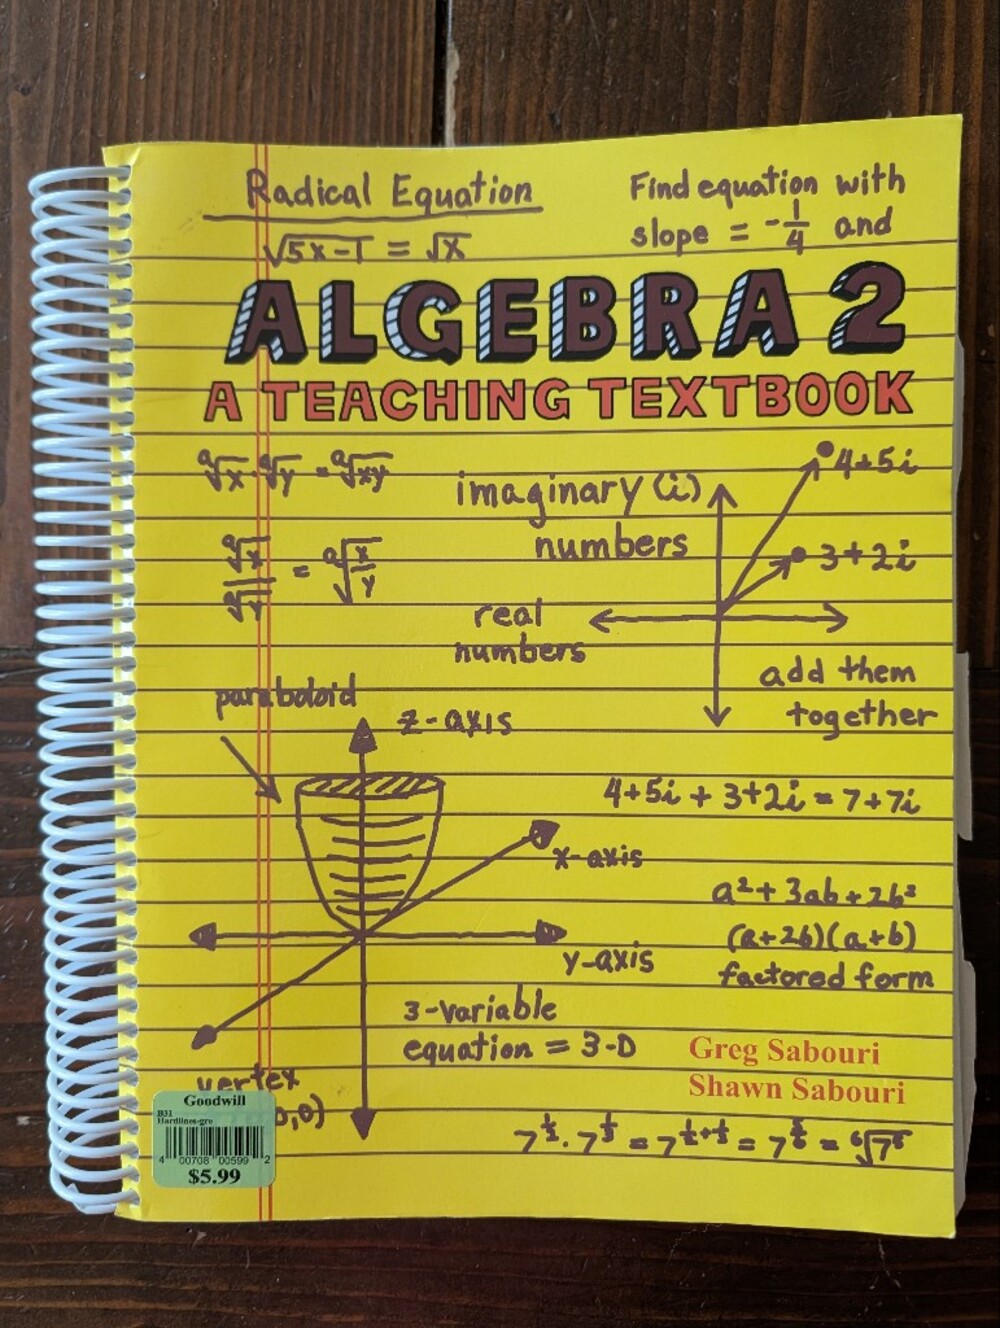 Radical Equation
√5x-1 = √x
Find equation with
slope = -1/4 and
ALGEBRA 2
A TEACHING TEXTBOOK
ᵃ√x · ᵃ√y = ᵃ√xy
imaginary (i)
numbers
4+5i
3+2i
ᵃ√x / ᵃ√y = ᵃ√x/y
real
numbers
add them
together
paraboloid
z-axis
4+5i + 3+2i = 7+7i
x-axis
a² + 3ab + 2b²
(a+2b)(a+b)
factored form
y-axis
3-variable
equation = 3-D
Greg Sabouri
Shawn Sabouri
vertex
0,0)
Goodwill
B31
Hardlines-gre
4 00708 00599 2
$5.99
7^1/2 · 7^1/3 = 7^1/2+1/3 = 7^5/6 = ⁶√7⁵